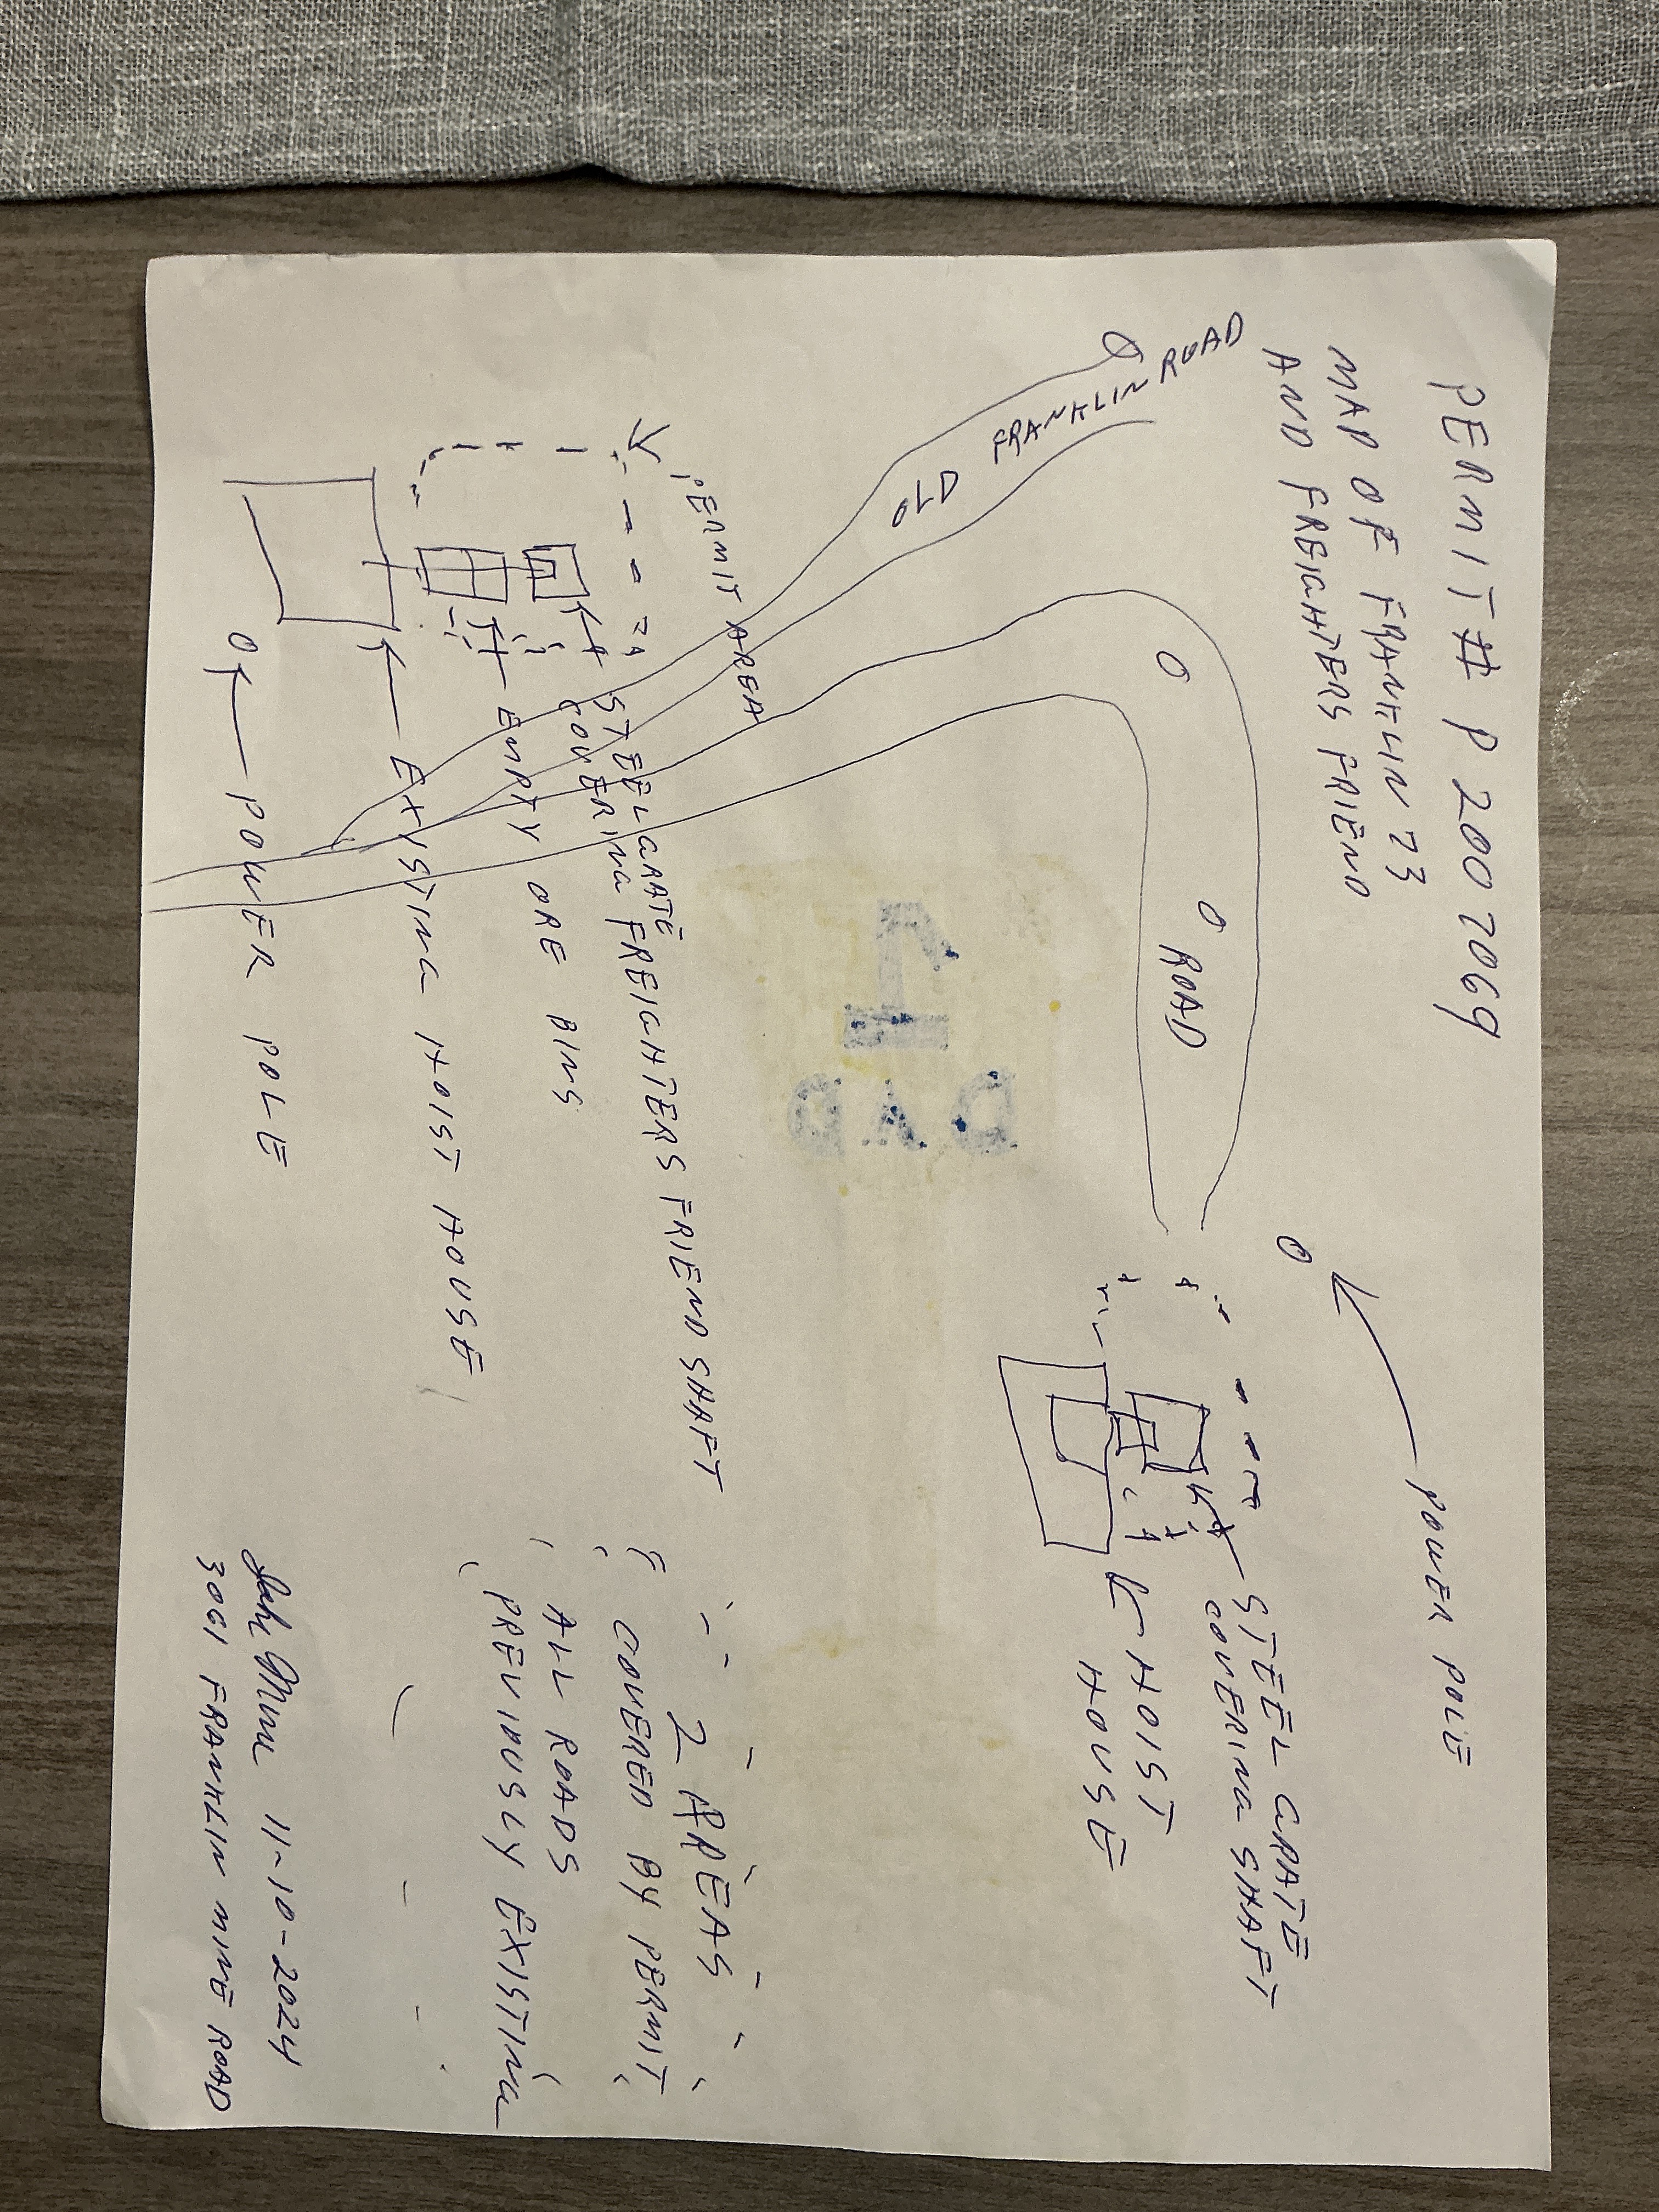 PERMIT # P 2007069
MAP OF FRANKLIN 73
AND FREIGHTERS FRIEND
POWER POLE
OLD FRANKLIN ROAD
ROAD
STEEL GRATE
COVERING SHAFT
HOIST
HOUSE
PERMIT AREA
STEEL GRATE
COVERING FREIGHTERS FRIEND SHAFT
EMPTY ORE BINS
EXISTING HOIST HOUSE
POWER POLE
2 AREAS
COVERED BY PERMIT
ALL ROADS
PREVIOUSLY EXISTING
11-10-2024
3061 FRANKLIN MINE ROAD
1
DAD